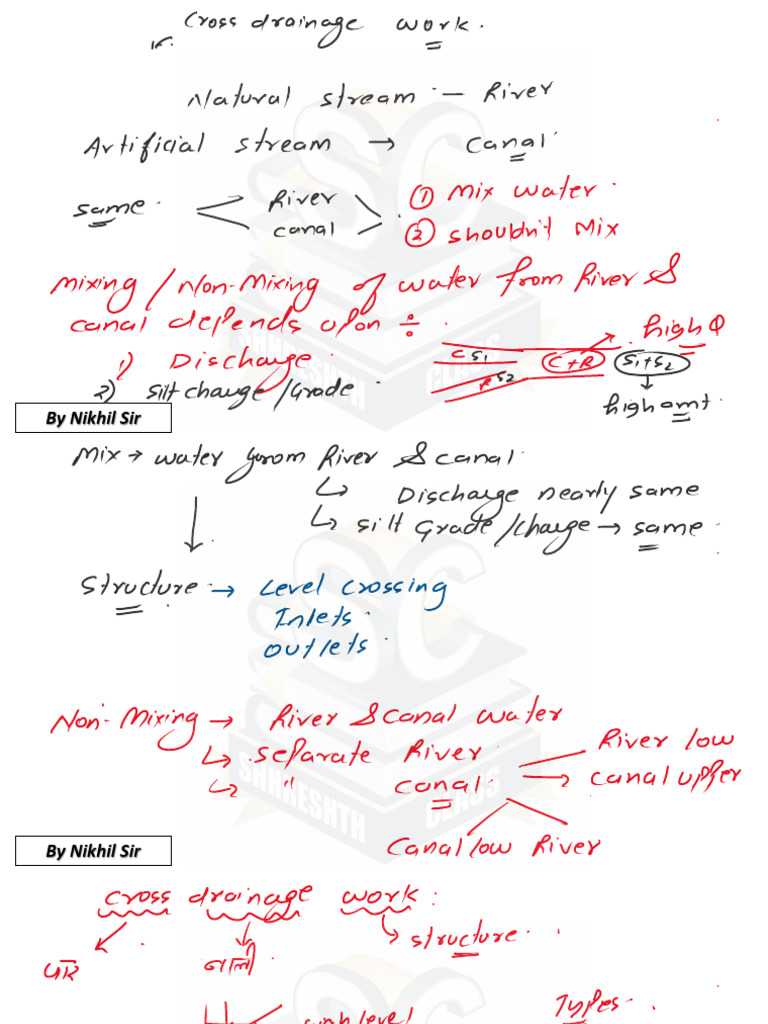 Cross drainage work.
Natural stream :- River
Artificial stream → canal.
same.
River
canal
① Mix water.
② shouldn't Mix
Mixing / Non-Mixing of water from River &
canal depends upon ÷
1) Discharge.
2) silt charge/Grade.
high Q
C S1
R S2
C+R
S1+S2
high amt.
By Nikhil Sir
Mix → water from River & canal.
↳ Discharge nearly same
↳ silt Grade/charge → same.
Structure → Level crossing
Inlets.
outlets.
Non-Mixing → River & canal water
↳ separate River.
↳ " canal.
River low
canal upper
Canal low River
By Nikhil Sir
cross drainage work:
↳ structure.
पार
नाली
high level
Types.
SHHRESHTH CLASS
SHHRESHTH CLASS